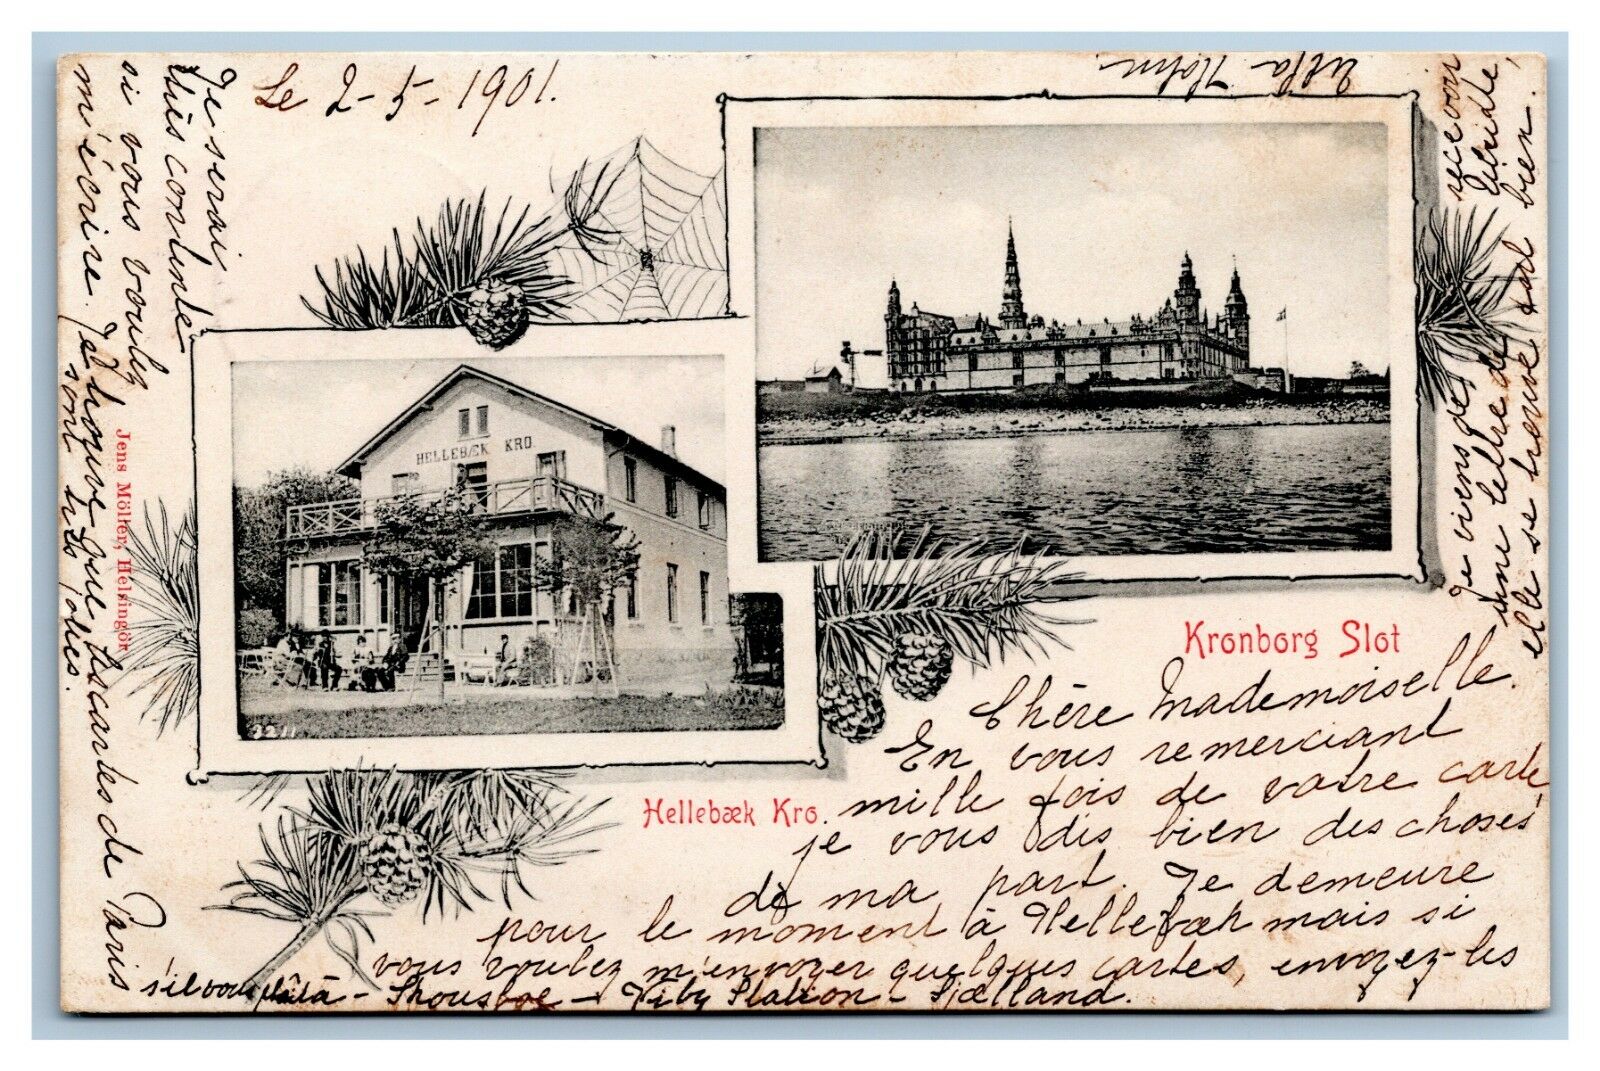 Le 2-5-1901.
Chère Mademoiselle.
En vous remerciant
mille fois de votre carte
je vous dis bien des choses
de ma part. Je demeure
pour le moment à Hellebæk mais si
vous voulez m'envoyer quelques cartes, envoyez-les
s'il vous plaît à - Skousboe - Viby Station - Sjælland.
Je serai
très contente
si vous voulez
m'écrire. Je trouve que les cartes de Paris
sont très jolies.
Je viens de recevoir
une lettre de
elle se trouve tout bien.
Ulla Holm.
HELLEBÆK KRO.
2211
Kronborg Slot
Hellebæk Kro.
Jens Möller, Helsingör